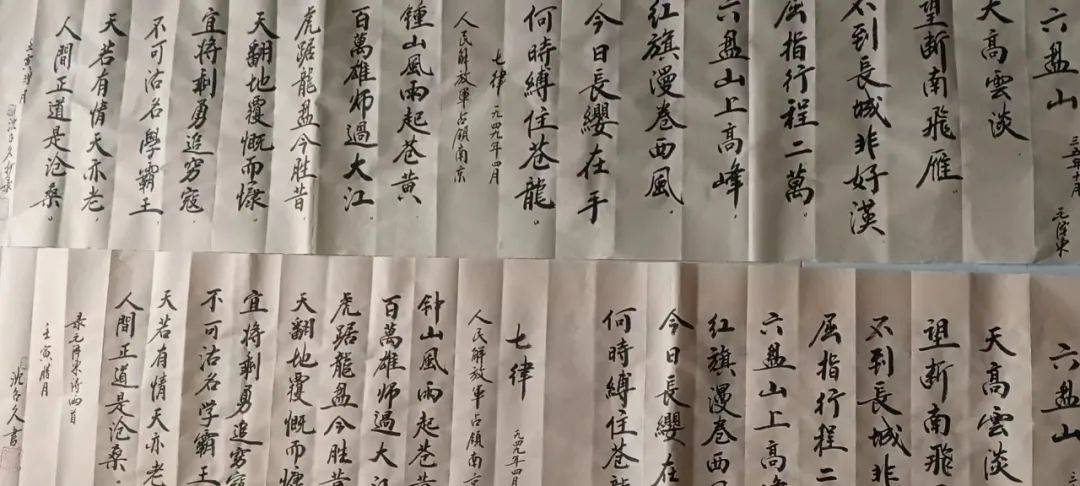 六盘山
三五年十月 毛泽东
天高雲淡
望断南飛雁。
不到長城非好漢
屈指行程二萬。
六盘山上高峰.
红旗漫卷西風
今日長纓在手
何時缚住苍龍。
七律 一九四九年四月
人民解放軍占領南京
鍾山風雨起苍黄
百萬雄师過大江.
虎踞龍盘今胜昔.
天翻地覆慨而慷.
宜将剩勇追穷寇
不可沽名學霸王.
天若有情天亦老
人間正道是沧桑。
六盘山
天高雲淡
望断南飛
不到長城非
屈指行程二
六盘山上高
红旗漫卷西
今日長纓在
何時缚住苍龍
七律 一九四九年四月
人民解放軍占領南京
钟山風雨起苍
百萬雄师過大江
虎踞龍盘今胜昔
天翻地覆慨而慷
宜将剩勇追穷
不可沽名学霸王
天若有情天亦老
人間正道是沧桑.
录毛泽东诗两首
壬寅腊月